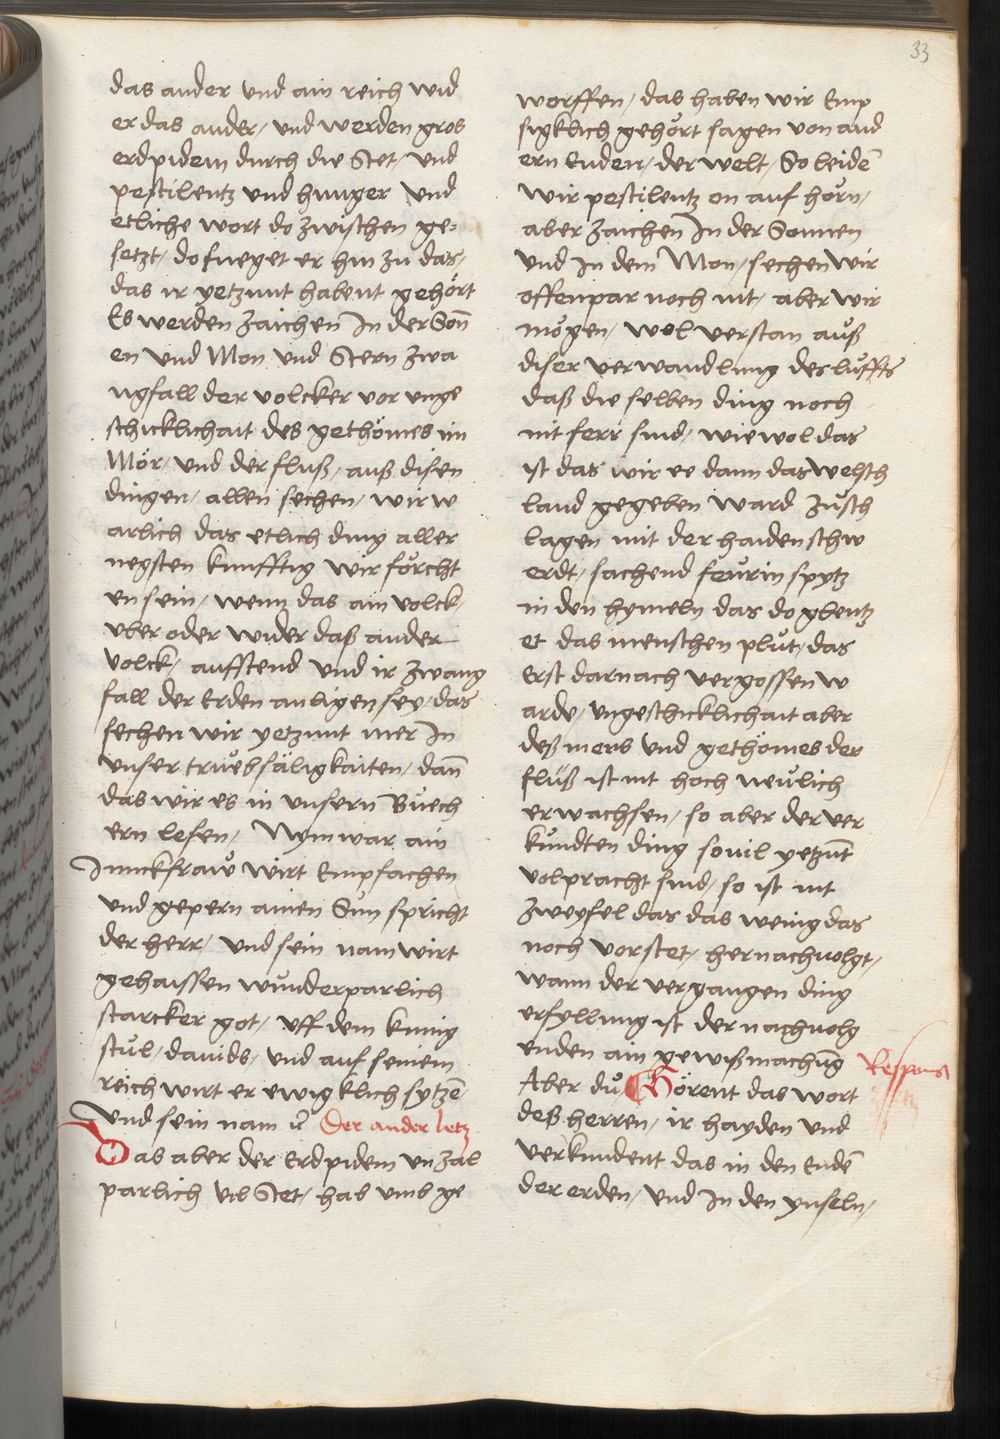 33
das ander vnd ain reich wid
er das ander, vnd werden gros
erdpidem durch die Stet, vnd
pestilentz vnd hunger vnd
etliche wort do zwischen ge-
setzt, do fueget er hin zu das,
das ir yetzunt habent gehört
Es werden zaichen In der Soñ
en vnd Mon vnd Stern zwa
ngfall der volcker vor vnge
schicklichait des gethömes im
Mör, vnd der fluß, auß disen
dingen, allen sechen, wir w
arlich das etlich ding aller
negsten kunfftig wir förcht
en sein, wenn das ain volck,
vber oder wider daß ander
volck, aufstend vnd ir zwang
fall der Erden anligen sey, das
sechen wir yetzunt mer In
vnser trüebsäligkaiten, dañ
das wir es in vnsern Büech
ern lesen, Nym war ain
Junckfraw wirt Empfachen
vnd gepern ainen Sun spricht
der herr, vnd sein nam wirt
gehaissen wunderparlich
starcker got, vff dem kunig
stul, dauids, vnd auf seinem
reich wirt er ewigklich sytzē
vnd sein nam Der ander letz
Das aber der Erdpidem vnzal
parlich vil Stet, hab vmb ge
worffen, das haben wir Emp
sigklich gehört sagen von and
ern Enden, der welt, So leidē
wir pestilentz on auf hörn,
aber zaichen In der Sonnen
vnd In dem Mon, sechen wir
offenpar noch nit, aber wir
mögen, wol verstan auß
diser verwandlung des luffts
daß die selben ding noch
nit ferr sind, wie wol das
ist das wir ee dann das welsch
land gegeben ward zusch
lagen mit der haiden schw
erdt, sachend feurin spytz
in den hymeln das do glentz
et das menschen plut, das
Erst darnach vergossen w
arde, vngeschicklichait aber
deß mers vnd gethömes der
fluß ist nit hoch neulich
erwachsen, so aber der ver
kundten ding souil yetzūt
volpracht sind, so ist nit
zweyfel das das wenig das
noch vorstet, hernachuolgt,
wann der vergangen ding
erfyllung ist der nachuolg
enden ain gewißmachūg
Aber du Hörent das wort Respons
deß herren, ir hayden vnd
verkundent das in den Endē
der erden, vnd In den ynseln,